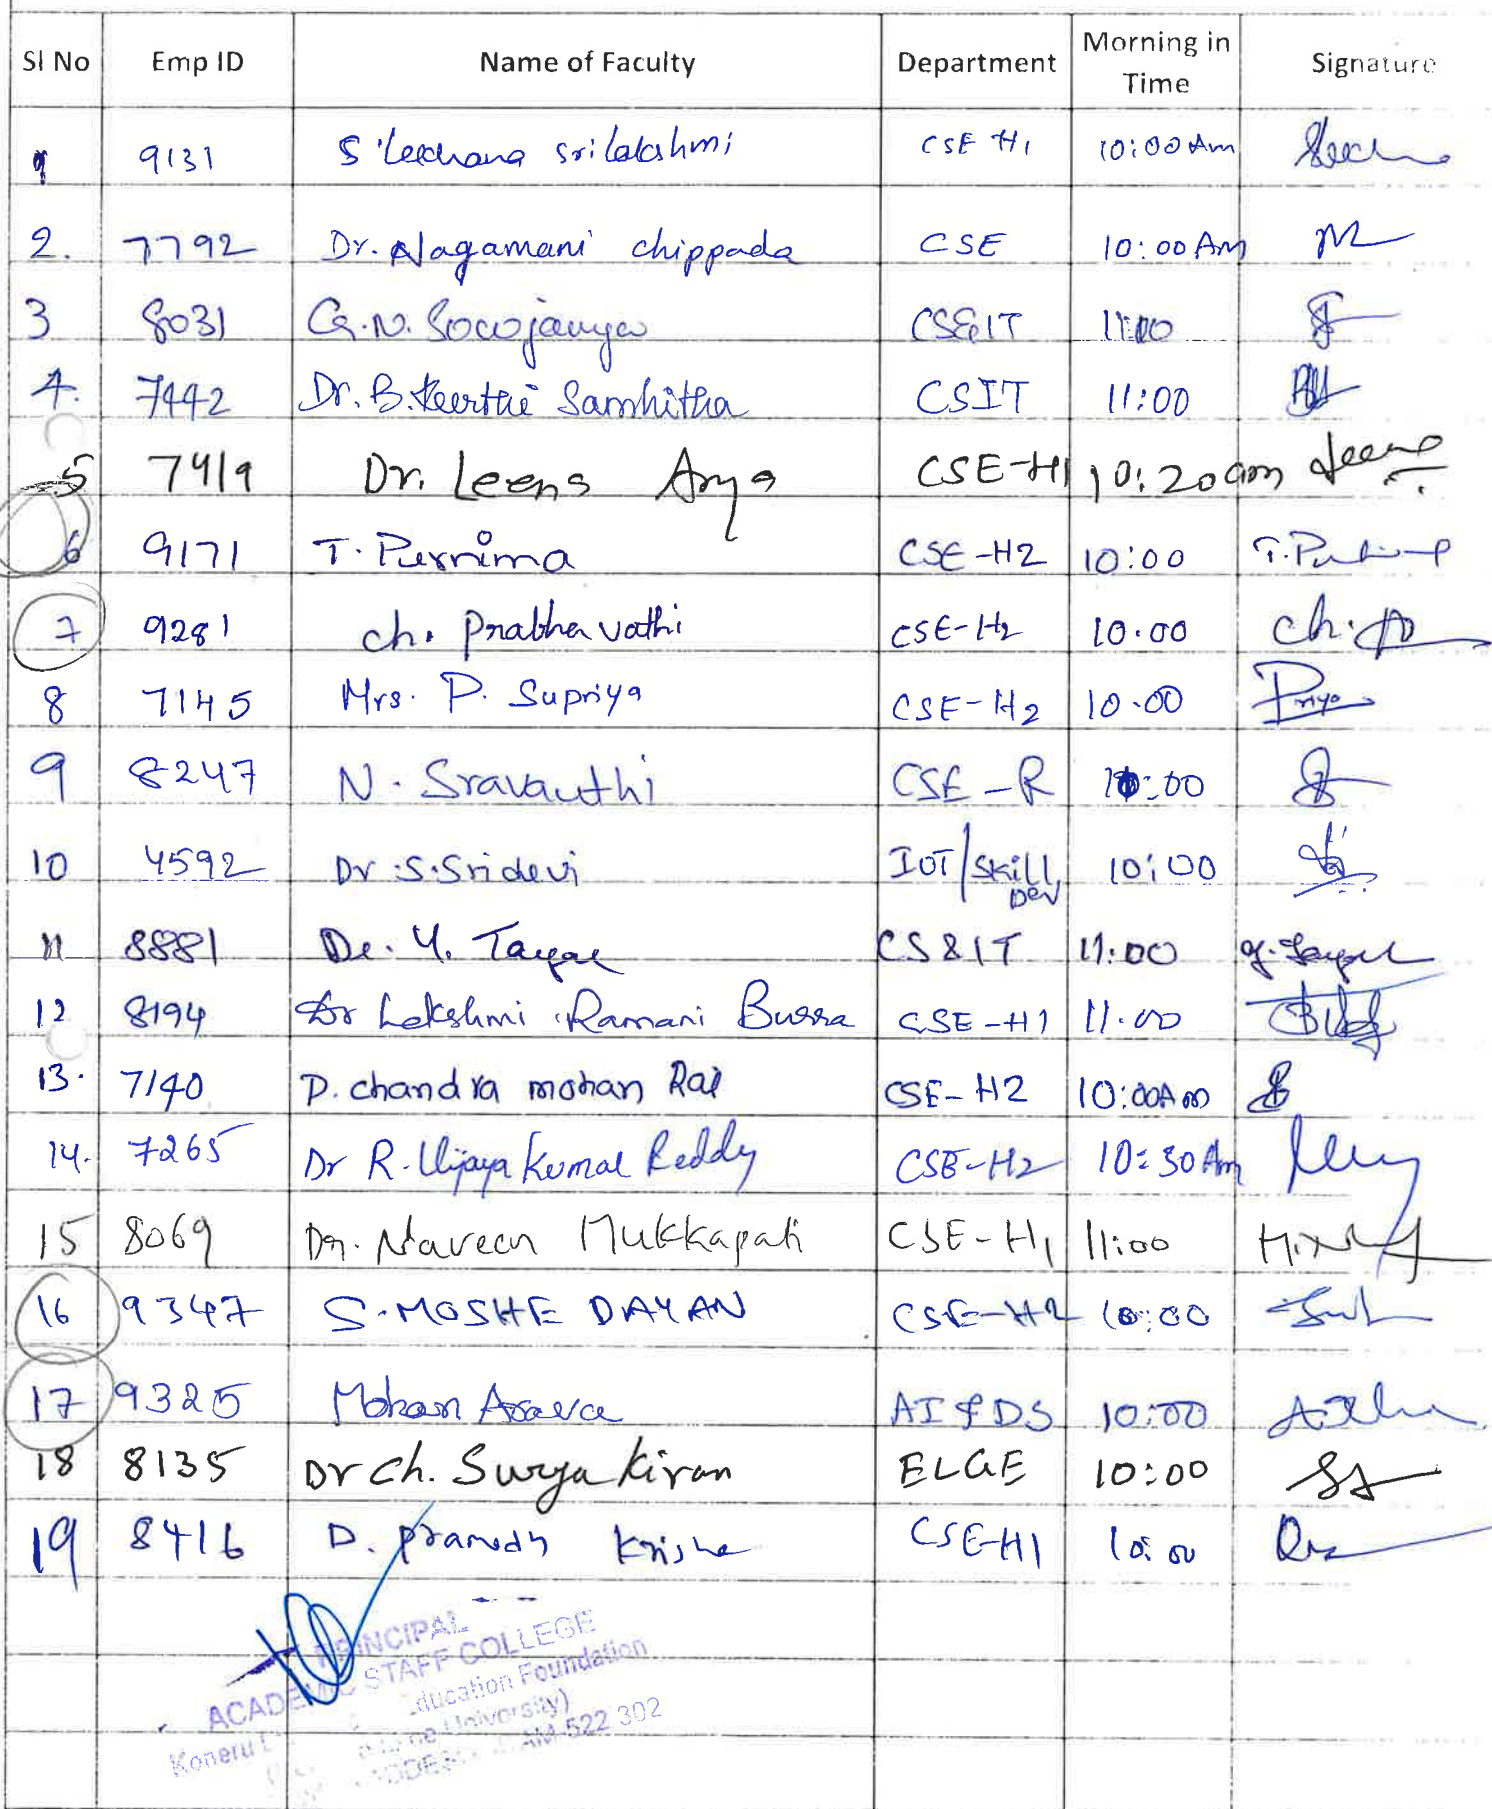 Sl No Emp ID Name of Faculty Department Morning in Time Signature
9131 S Leechana srilakshmi CSE H1 10:00 Am
2. 7792 Dr. Nagamani chippada CSE 10:00 Am
3 8031 G.N. Sowojanya CS&IT 11:00
4. 7442 Dr. B. Keerthi Samhitha CSIT 11:00
5 7419 Dr. Leena Arya CSE-H1 10:20am
6 9171 T. Purnima CSE-H2 10:00
7 9281 Ch. Prabhavathi CSE-H2 10.00
8 7145 Mrs. P. Supriya CSE-H2 10.00 Priya
9 8247 N. Sravanthi CSE-R 10:00
10 4592 Dr. S. Sridevi IOT/Skill Dev 10:00
11 8881 Dr. Y. Tayar CS&IT 11:00
12 8194 Dr Lakshmi Ramani Burra CSE-H1 11.00
13. 7140 P. chandra mohan Rai CSE-H2 10:00Am
14. 7265 Dr R. Vijaya Kumar Reddy CSE-H2 10:30 Am
15 8069 Dr. Naveen Mukkapati CSE-H1 11:00
16 9347 S. MOSHE DAYAN CSE-H2 10:00
17 9325 Mohan Asava AI & DS 10:00
18 8135 Dr Ch. Surya Kiran ELGE 10:00
19 8416 D. Pramodh Krishna CSE-H1 10:00
PRINCIPAL
ACADEMIC STAFF COLLEGE
Koneru Education Foundation
University)
522 302